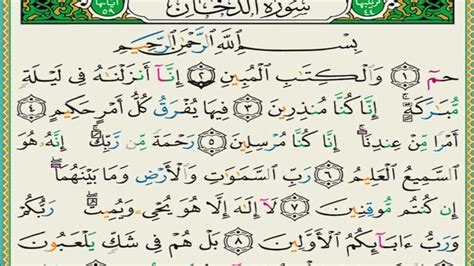 ترتيبها ٤٤ سُورَةُ الدُّخَانِ آياتها ٥٩
بِسْمِ ٱللَّهِ ٱلرَّحْمَٰنِ ٱلرَّحِيمِ
حمٓ ١ وَٱلْكِتَٰبِ ٱلْمُبِينِ ٢ إِنَّآ أَنزَلْنَٰهُ فِى لَيْلَةٍ
مُّبَٰرَكَةٍ ۚ إِنَّا كُنَّا مُنذِرِينَ ٣ فِيهَا يُفْرَقُ كُلُّ أَمْرٍ حَكِيمٍ ٤
أَمْرًا مِّنْ عِندِنَآ ۚ إِنَّا كُنَّا مُرْسِلِينَ ٥ رَحْمَةً مِّن رَّبِّكَ ۚ إِنَّهُۥ هُوَ
ٱلسَّمِيعُ ٱلْعَلِيمُ ٦ رَبِّ ٱلسَّمَٰوَٰتِ وَٱلْأَرْضِ وَمَا بَيْنَهُمَآ ۖ
إِن كُنتُم مُّوقِنِينَ ٧ لَآ إِلَٰهَ إِلَّا هُوَ يُحْىِۦ وَيُمِيتُ ۖ رَبُّكُمْ
وَرَبُّ ءَابَآئِكُمُ ٱلْأَوَّلِينَ ٨ بَلْ هُمْ فِى شَكٍّ يَلْعَبُونَ